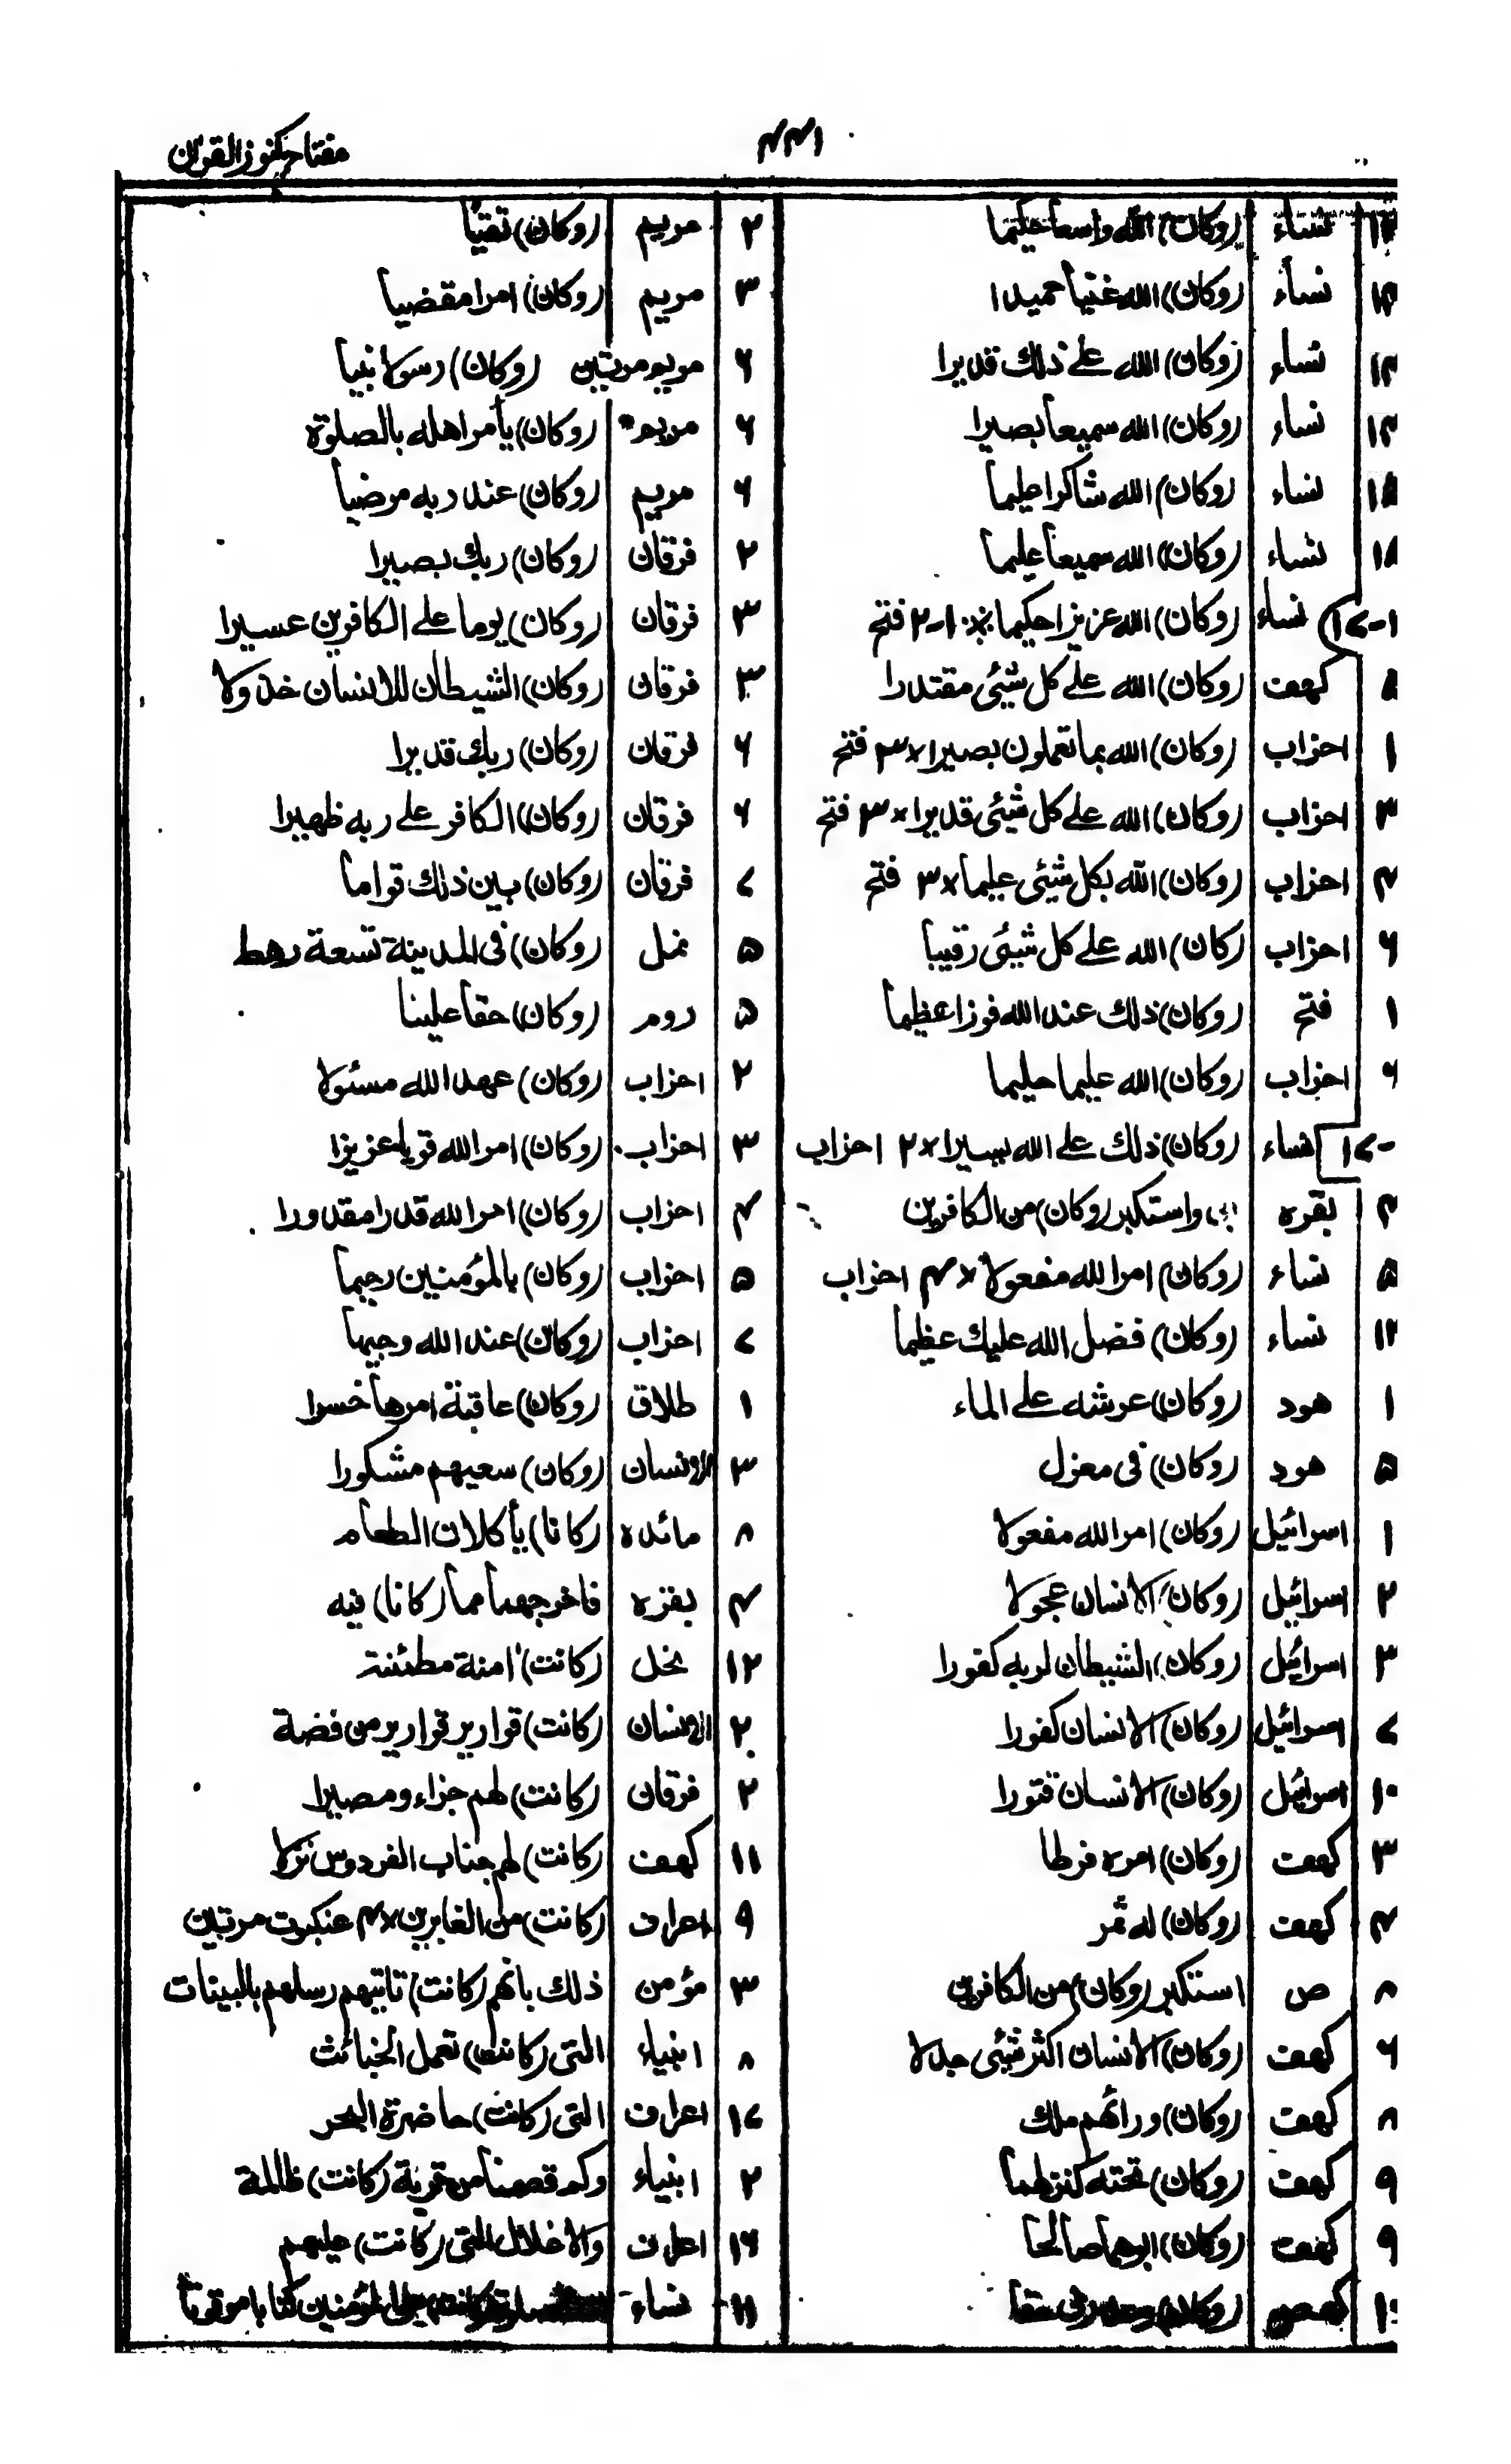 مفتاح کنوز القرآن
۱۴ نساء (وکان) الله واسعا حکیما
۱۴ نساء (وکان) الله غنیاً حمیدا
۱۴ نساء (وکان) الله علے ذلك قدیرا
۱۴ نساء (وکان) الله سمیعاً بصیرا
۱۵ نساء (وکان) الله شاکرا علیماً
۱۸ نساء (وکان) الله سمیعاً علیماً
نساء (وکان) الله عزیزا حکیما فتح
۵ کهف (وکان) الله علے کل شیئی مقتدرا
۱ احزاب (وکان) الله بما تعملون بصیرا × ۳ فتح
۳ احزاب (وکان) الله علے کل شیئی قدیرا × ۳ فتح
۴ احزاب (وکان) الله بکل شیئی علیما × ۳ فتح
۶ احزاب (کان) الله علے کل شیئی رقیباً
۱ فتح (وکان) ذلك عند الله فوزا عظیماً
۶ احزاب (وکان) الله علیما حلیما
نساء (وکان) ذلك علے الله یسیرا × ۲ احزاب
۴ بقره واستکبر (وکان) من الکافرین
۵ نساء (وکان) امر الله مفعولا × ۴ احزاب
۱۲ نساء (وکان) فضل الله علیك عظیماً
۱ هود (وکان) عرشه علے الماء
۵ هود (وکان) فی معزل
۱ اسرائیل (وکان) امر الله مفعولا
۲ اسرائیل (وکان) الانسان عجولا
۳ اسرائیل (وکان) الشیطان لربه کفورا
۷ اسرائیل (وکان) الانسان کفورا
۱۰ اسرائیل (وکان) الانسان قتورا
۳ کهف (وکان) امره فرطا
۴ کهف (وکان) له ثمر
۸ ص استکبر (وکان) من الکافرین
۶ کهف (وکان) الانسان اکثر شیئی جدلا
۸ کهف (وکان) ورائهم ملك
۹ کهف (وکان) تحته کنز لهما
۹ کهف (وکان) ابوهما صالحاً
کهف (وکان)
۲ مریم (وکان) تقیاً
۳ مریم (وکان) امرا مقضیاً
۶ مریم مرتین (وکان) رسولا نبیاً
۶ مریم (وکان) یأمر اهله بالصلوة
۶ مریم (وکان) عند ربه مرضیاً
۲ فرقان (وکان) ربك بصیرا
۳ فرقان (وکان) یوما علے الکافرین عسیرا
۳ فرقان (وکان) الشیطان للانسان خذولا
۶ فرقان (وکان) ربك قدیرا
۶ فرقان (وکان) الکافر علے ربه ظهیرا
۷ فرقان (وکان) بین ذلك قواماً
۵ نمل (وکان) فی المدینة تسعة رهط
۵ روم (وکان) حقاً علینا
۲ احزاب (وکان) عهد الله مسئولا
۳ احزاب (وکان) امر الله قویا عزیزا
۴ احزاب (وکان) امر الله قدرا مقدورا
۵ احزاب (وکان) بالمؤمنین رحیماً
۷ احزاب (وکان) عند الله وجیهاً
۱ طلاق (وکان) عاقبة امرها خسرا
۳ الانسان (وکان) سعیهم مشکورا
۸ مائده (کانا) یأکلان الطعام
۴ بقره فاخرجهما مما (کانا) فیه
۱۲ نحل (کانت) امنة مطئنة
۲ الانسان (کانت) قواریر قواریر من فضة
۲ فرقان (کانت) لهم جزاء ومصیرا
۱۱ کهف (کانت) لهم جناب الفردوس نزلا
۹ اعراف (کانت) من الغابرین × ۴ عنکبوت مرتین
۳ مؤمن ذلك بانهم (کانت) تاتیهم رسلهم بالبینات
۸ انبیاء التی (کانت) تعمل الخبائث
۱۷ اعراف التی (کانت) حاضرة البحر
۲ انبیاء وکم قصمنا من قریة (کانت) ظالمة
۱۶ اعراف والاغلال التی (کانت) علیهم
۱۱ نساء المؤمنین کتابا موقوتا